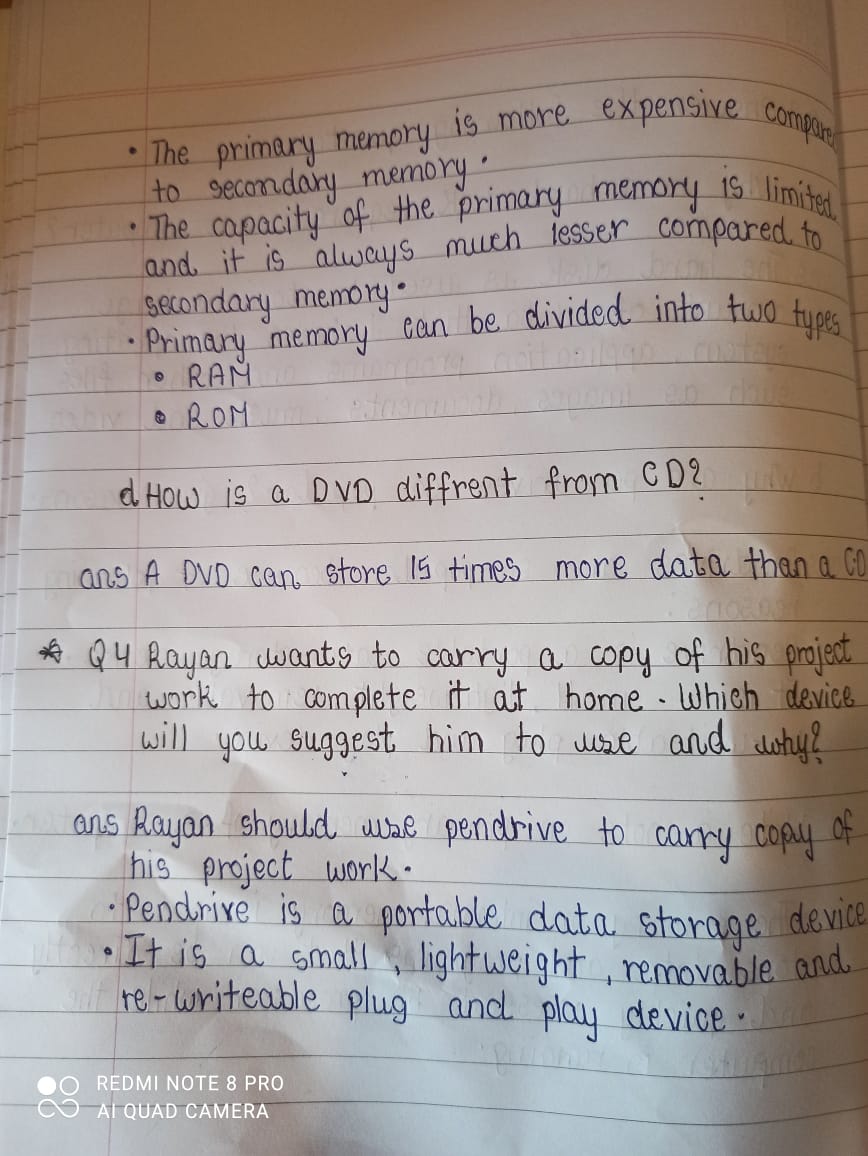 • The primary memory is more expensive compare
to secondary memory.
• The capacity of the primary memory is limited
and it is always much lesser compared to
secondary memory.
• Primary memory can be divided into two types
• RAM
• ROM
d How is a DVD diffrent from CD?
ans A DVD can store 15 times more data than a CD
* Q4 Rayan wants to carry a copy of his project
work to complete it at home. Which device
will you suggest him to use and why?
ans Rayan should use pendrive to carry copy of
his project work.
• Pendrive is a portable data storage device
• It is a small, lightweight, removable and
re-writeable plug and play device.
REDMI NOTE 8 PRO
AI QUAD CAMERA